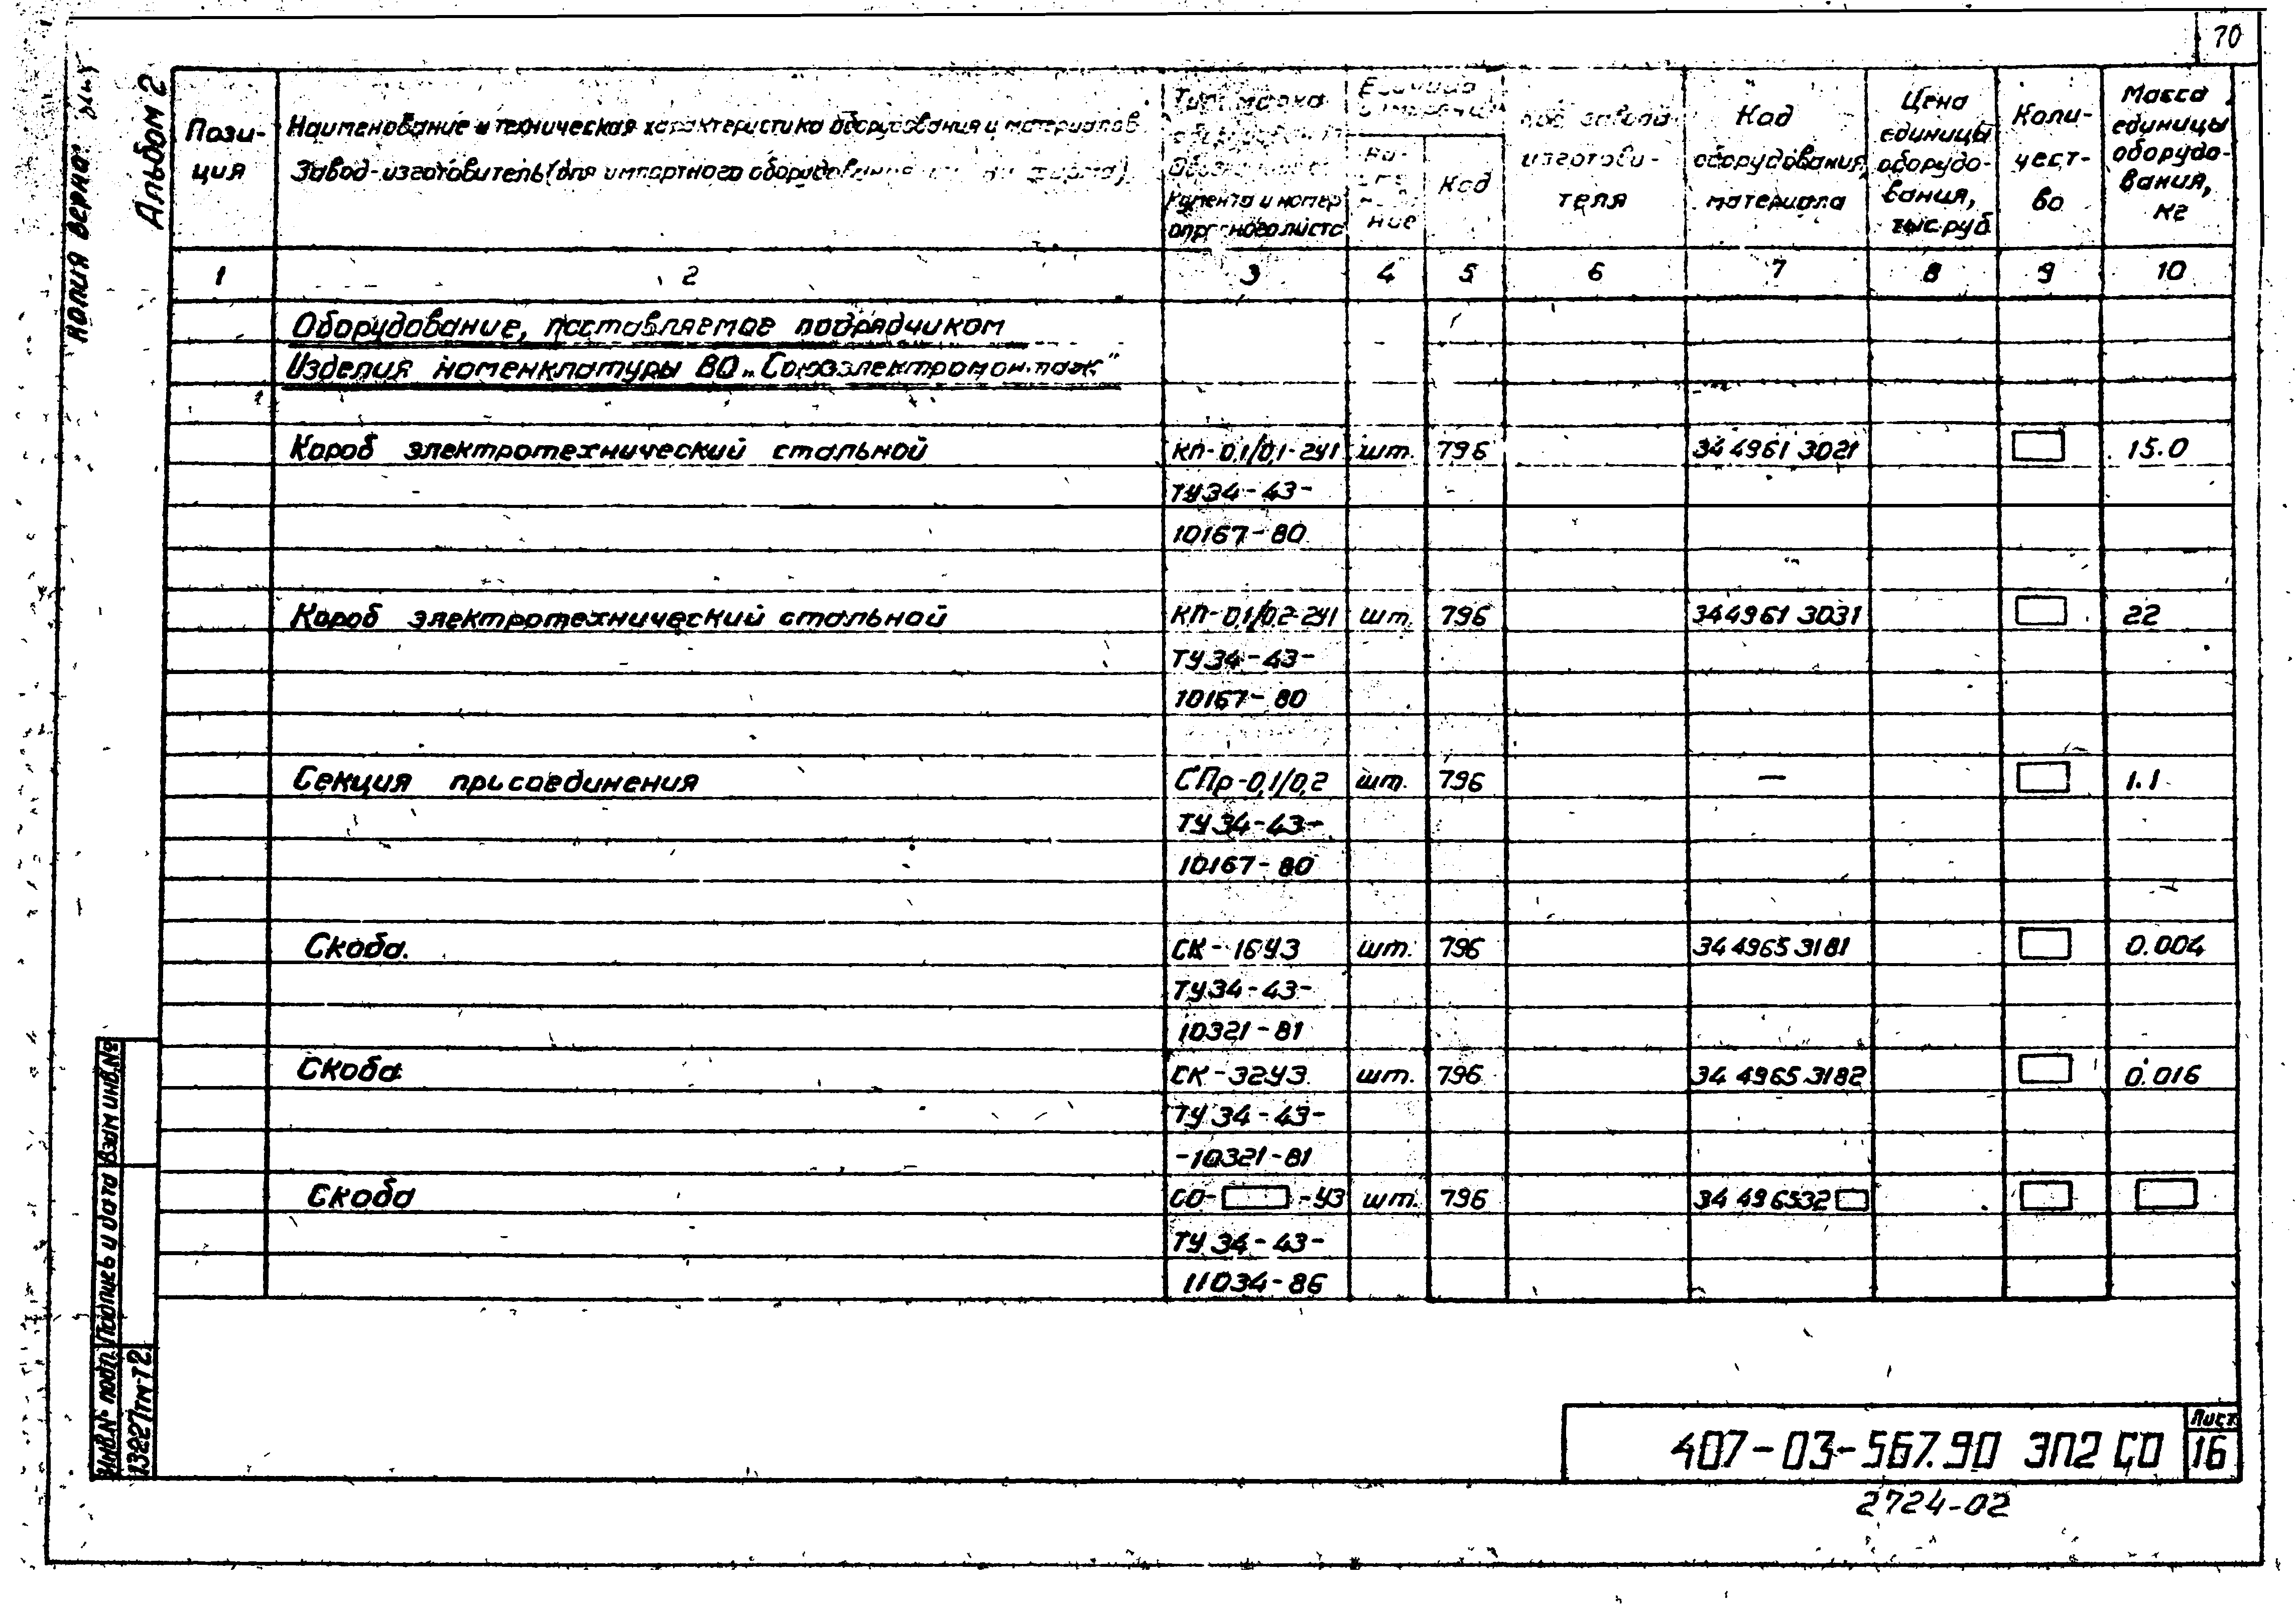 70
Копия верна:
Альбом 2
Пози-
ция
Наименование и техническая характеристика оборудования и материалов
Завод-изготовитель (для импортного оборудования
Тип, марка
кумента и номер
опросного листа
Единица
ние
Код
Код завода
изготови-
теля
Код
оборудования,
материала
Цена
единицы
оборудо-
вания,
тыс.руб
Коли-
чест-
во
Масса
единицы
оборудо-
вания,
кг
1 2 3 4 5 6 7 8 9 10
Оборудование, поставляемое подрядчиком
Изделия номенклатуры ВО „Союзэлектромонтаж"
Короб электротехнический стальной КП-0,1/0,1-2У1 шт. 796 34 4961 3021 15.0
ТУ34-43-
10167-80
Короб электротехнический стальной КП-0,1/0,2-2У1 шт. 796 34 4961 3031 22
ТУ34-43-
10167-80
Секция присоединения СПр-0,1/0,2 шт. 796 — 1.1
ТУ34-43-
10167-80
Скоба. СК-16У3 шт. 796 34 4965 3181 0.004
ТУ34-43-
10321-81
Скоба СК-32У3 шт. 796 34 4965 3182 0.016
ТУ34-43-
-10321-81
Скоба СО- -У3 шт. 796 34 496532
ТУ34-43-
11034-86
Взам инв.№
Подпись и дата
Инв.№ подл.
13227тм-Т2
407-03-567.90 ЭП2 СО
Лист
16
2724-02